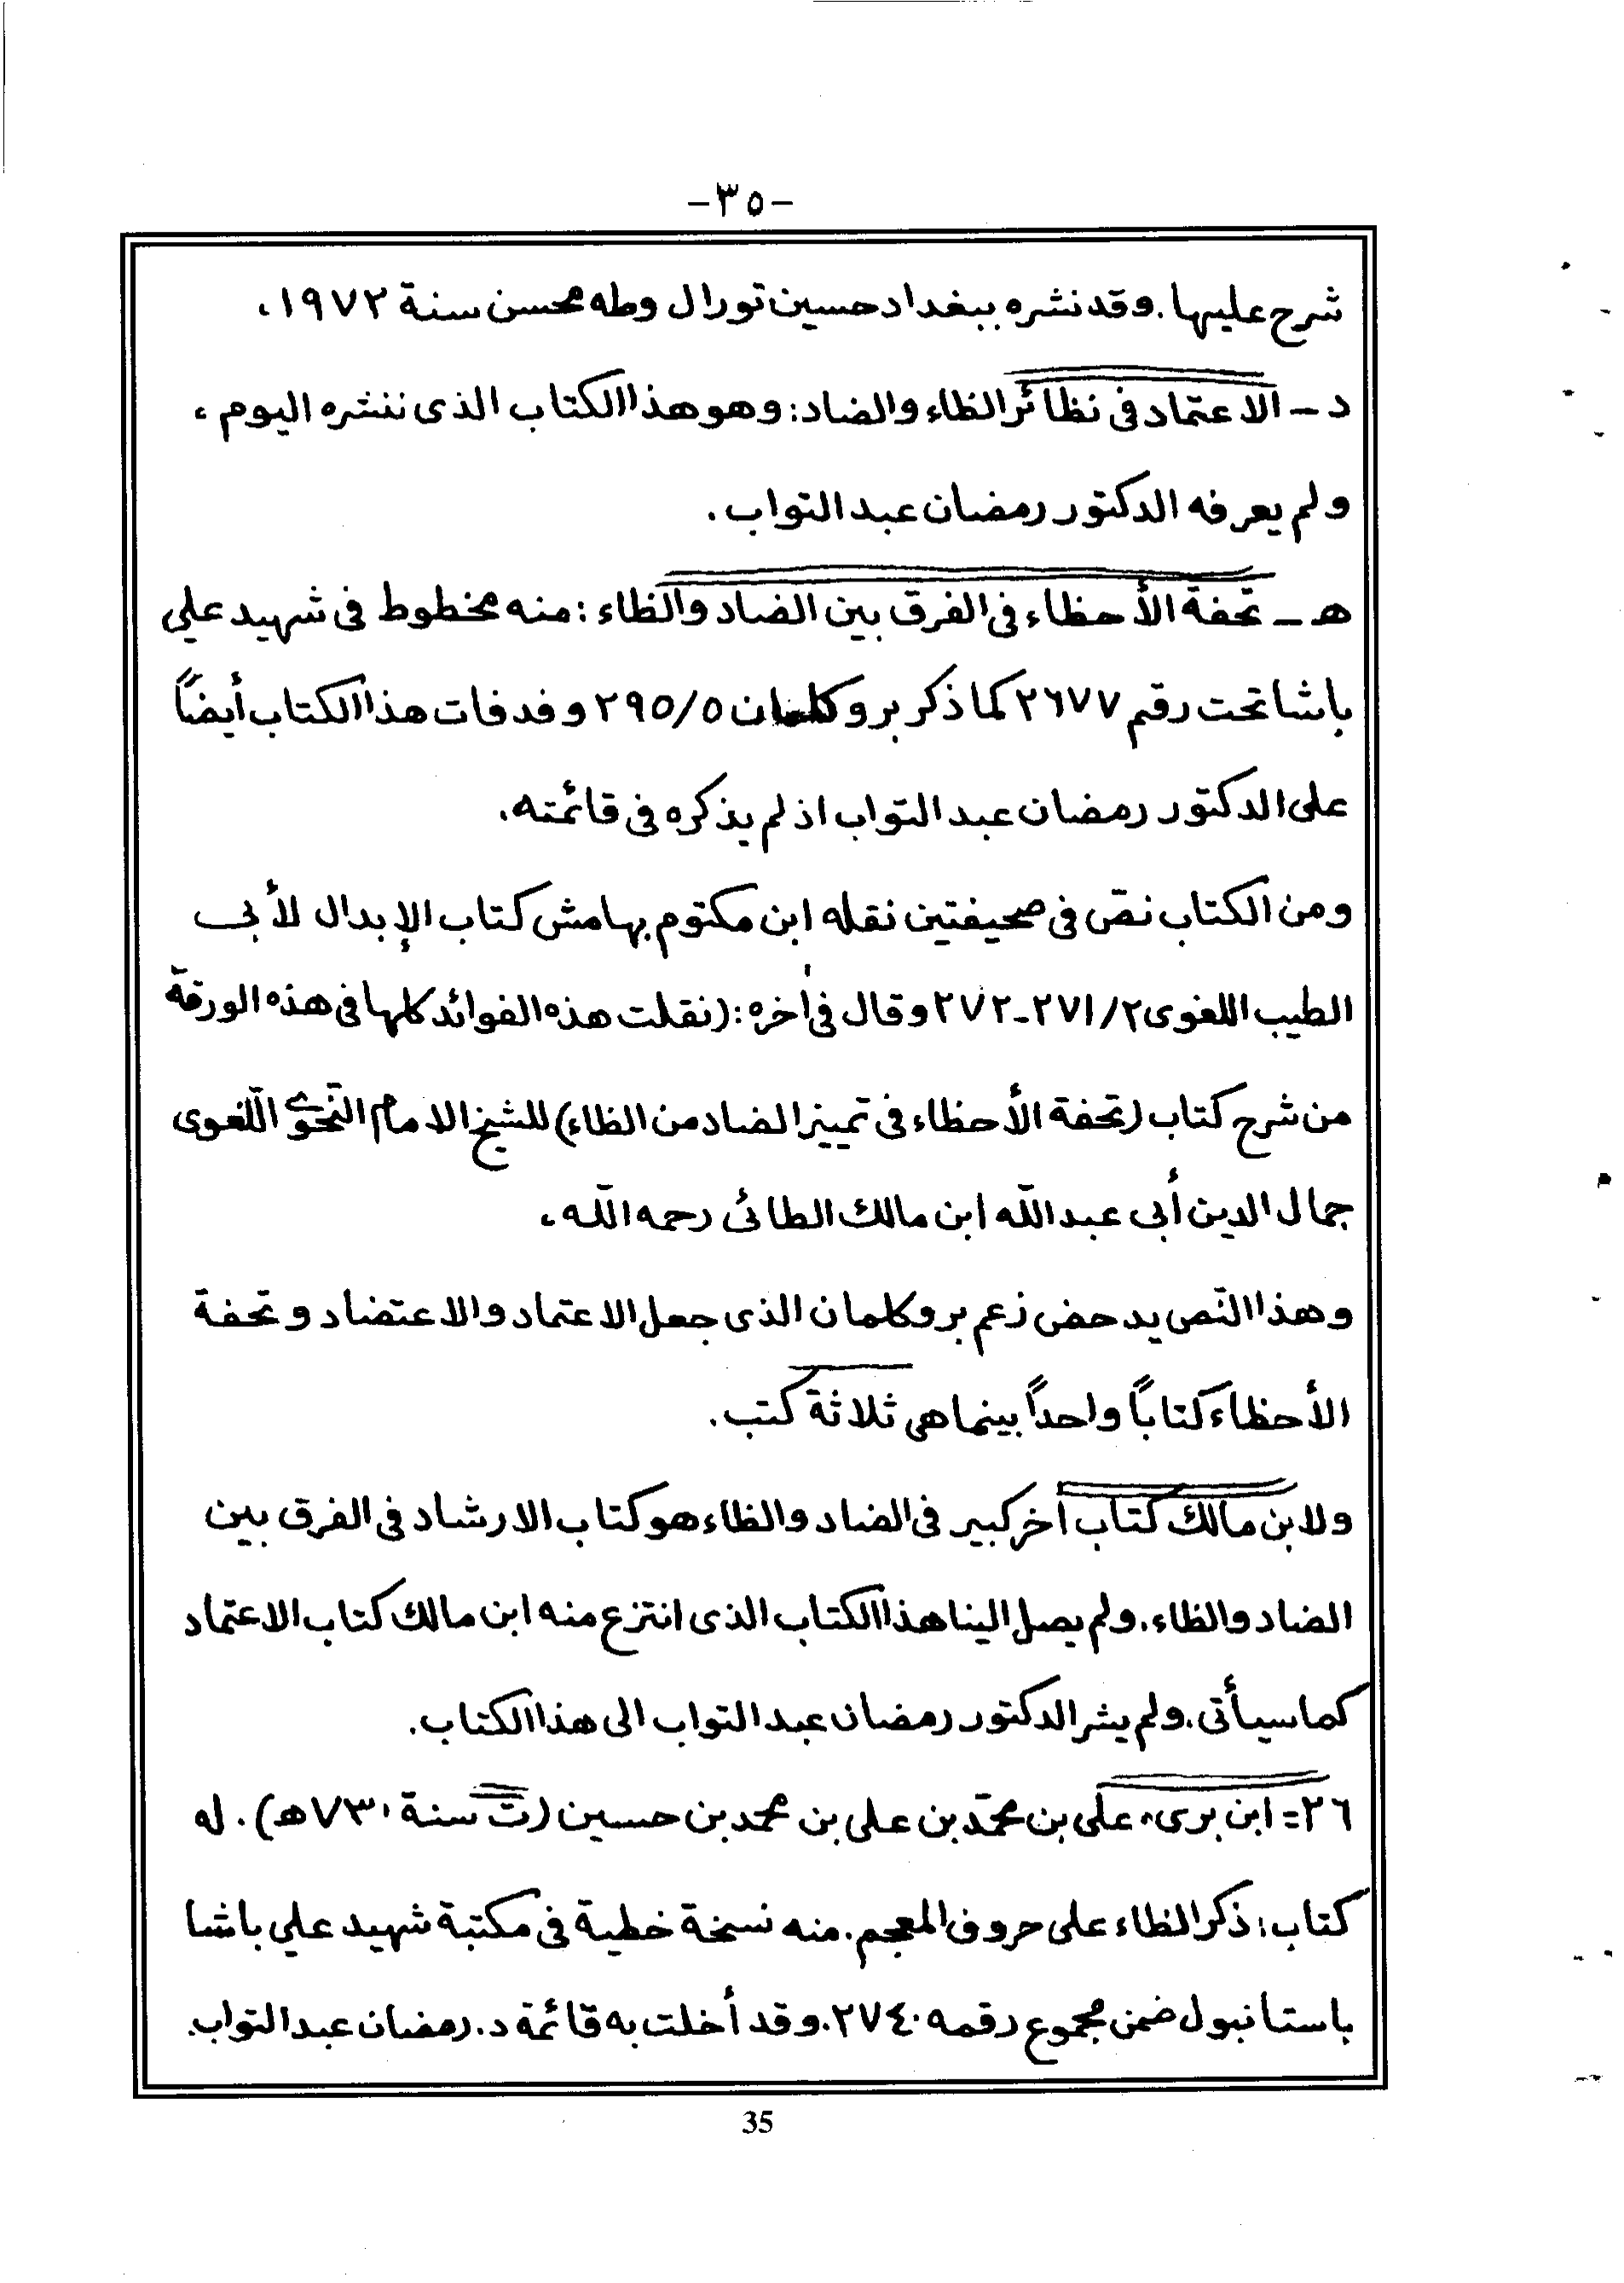 -٣٥-
شرح عليها. وقد نشره ببغداد حسين تورال وطه محسن سنة ١٩٧٢،
د - الاعتماد في نظائر الظاء والضاد: وهو هذا الكتاب الذى ننشره اليوم،
ولم يعرفه الدكتور رمضان عبد التواب.
هـ - تحفة الأحظاء في الفرق بين الضاد والظاء: منه مخطوط في شهيد علي
باشا تحت رقم ٢٦٧٧ كما ذكر بروكلمان ٢٩٥/٥ وفد فات هذا الكتاب أيضاً
على الدكتور رمضان عبد التواب اذ لم يذكره في قائمته.
ومن الكتاب نصّ في صحيفتين نقله ابن مكتوم بهامش كتاب الإبدال لأبى
الطيب اللغوى ٢٧١/٢-٢٧٢ وقال في أخره: (نقلت هذه الفوائد كلها في هذه الورقة
من شرح كتاب (تحفة الأحظاء في تمييز الضاد من الظاء) للشيخ الامام النّحوى اللّغوى
جمال الدين أبى عبد اللّه ابن مالك الطائى رحمه اللّه،
وهذا النّص يدحض زعم بروكلمان الذى جعل الاعتماد والاعتضاد وتحفة
الأحظاء كتاباً واحداً بينما هي ثلاثة كتب.
ولابن مالك كتاب أخر كبير في الضاد والظاء هو كتاب الارشاد في الفرق بين
الضاد والظاء. ولم يصل الينا هذا الكتاب الذى انتزع منه ابن مالك كتاب الاعتماد
كما سيأتى. ولم يشر الدكتور رمضان عبد التواب الى هذا الكتاب.
٢٦= ابن برى، على بن محمّد بن على بن محمد بن حسين (ت سنة ٧٣٠هـ). له
كتاب: ذكر الظاء على حروف المعجم. منه نسخة خطية في مكتبة شهيد علي باشا
باستانبول ضمن مجموع رقمه ٢٧٤٠. وقد أخلت به قائمة د. رمضان عبد التواب.
35